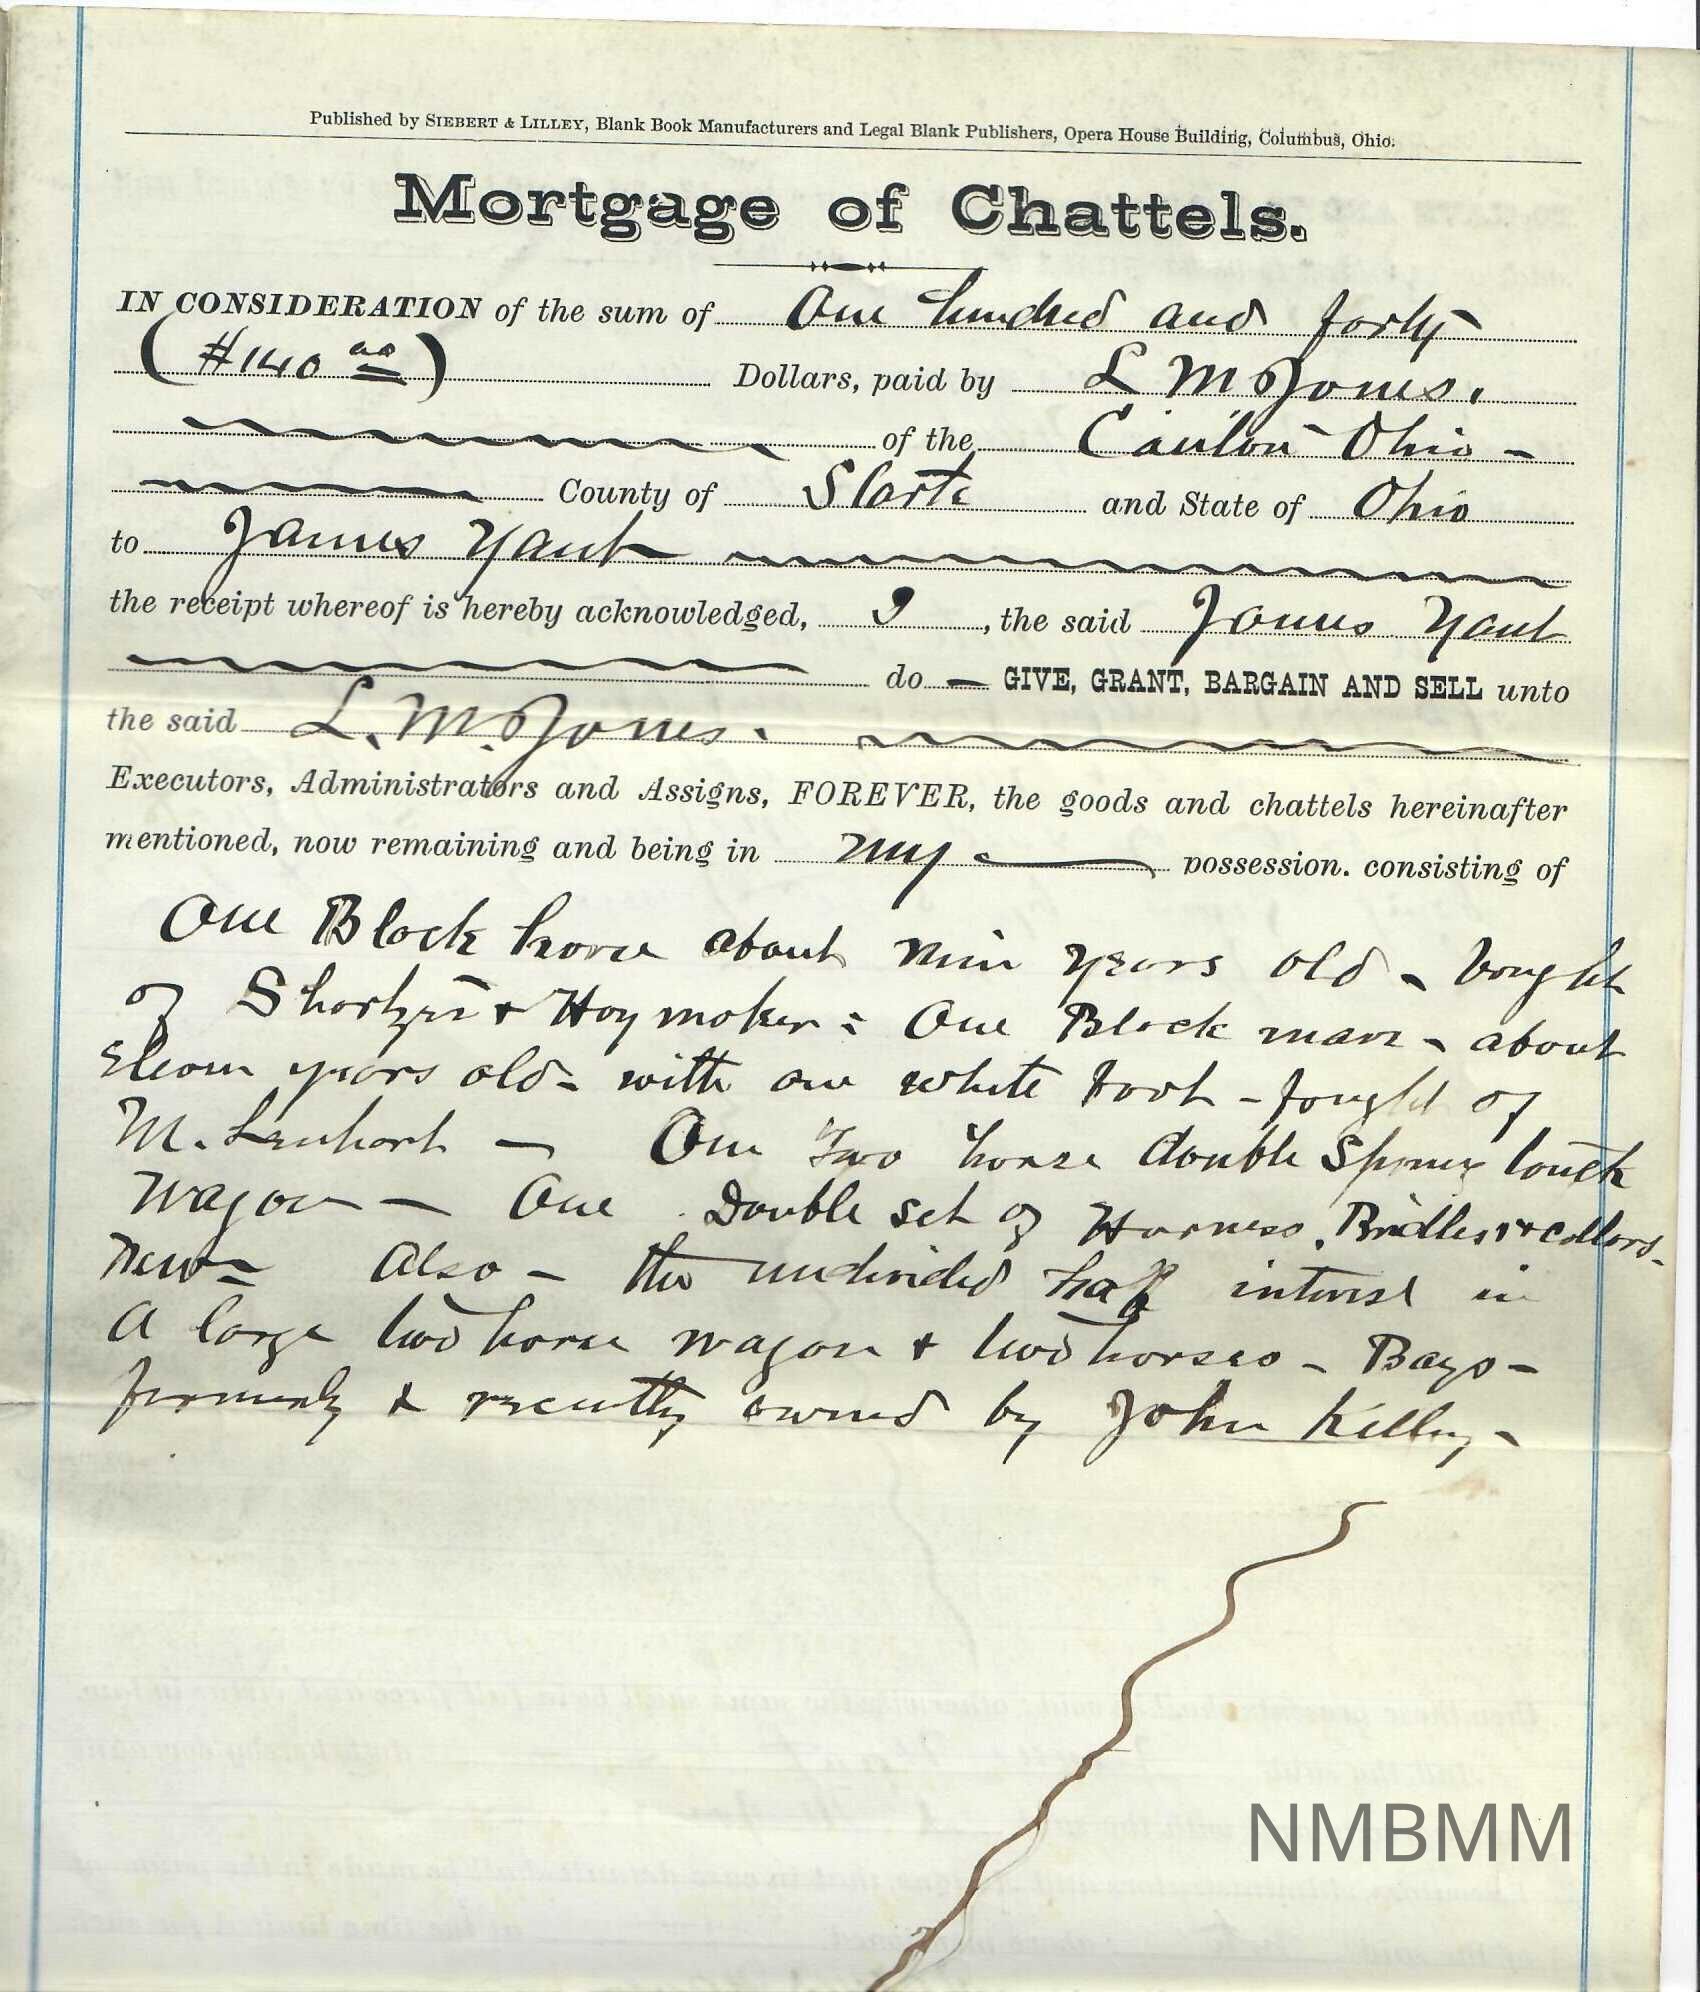 Published by SIEBERT & LILLEY, Blank Book Manufacturers and Legal Blank Publishers, Opera House Building, Columbus, Ohio.
Mortgage of Chattels.
IN CONSIDERATION of the sum of One hundred and forty
(#140 00) Dollars, paid by L M Jones.
of the Canton Ohio -
County of Starke and State of Ohio
to James Yant
the receipt whereof is hereby acknowledged, I, the said James Yant
do - GIVE, GRANT, BARGAIN AND SELL unto
the said L. M. Jones.
Executors, Administrators and Assigns, FOREVER, the goods and chattels hereinafter
mentioned, now remaining and being in my possession. consisting of
One Black horse about nine years old - bought
of & Haymaker : One Black mare - about
eleven years old - with one white foot - fought of
M. Lenhart - One Two horse double Spring
Wagon - One Double set of Harness, Bridles & collars -
new - Also - the undivided half interest in
A large two horse wagon & two horses - Bays -
formerly & recently owned by John Kelley -
NMBMM